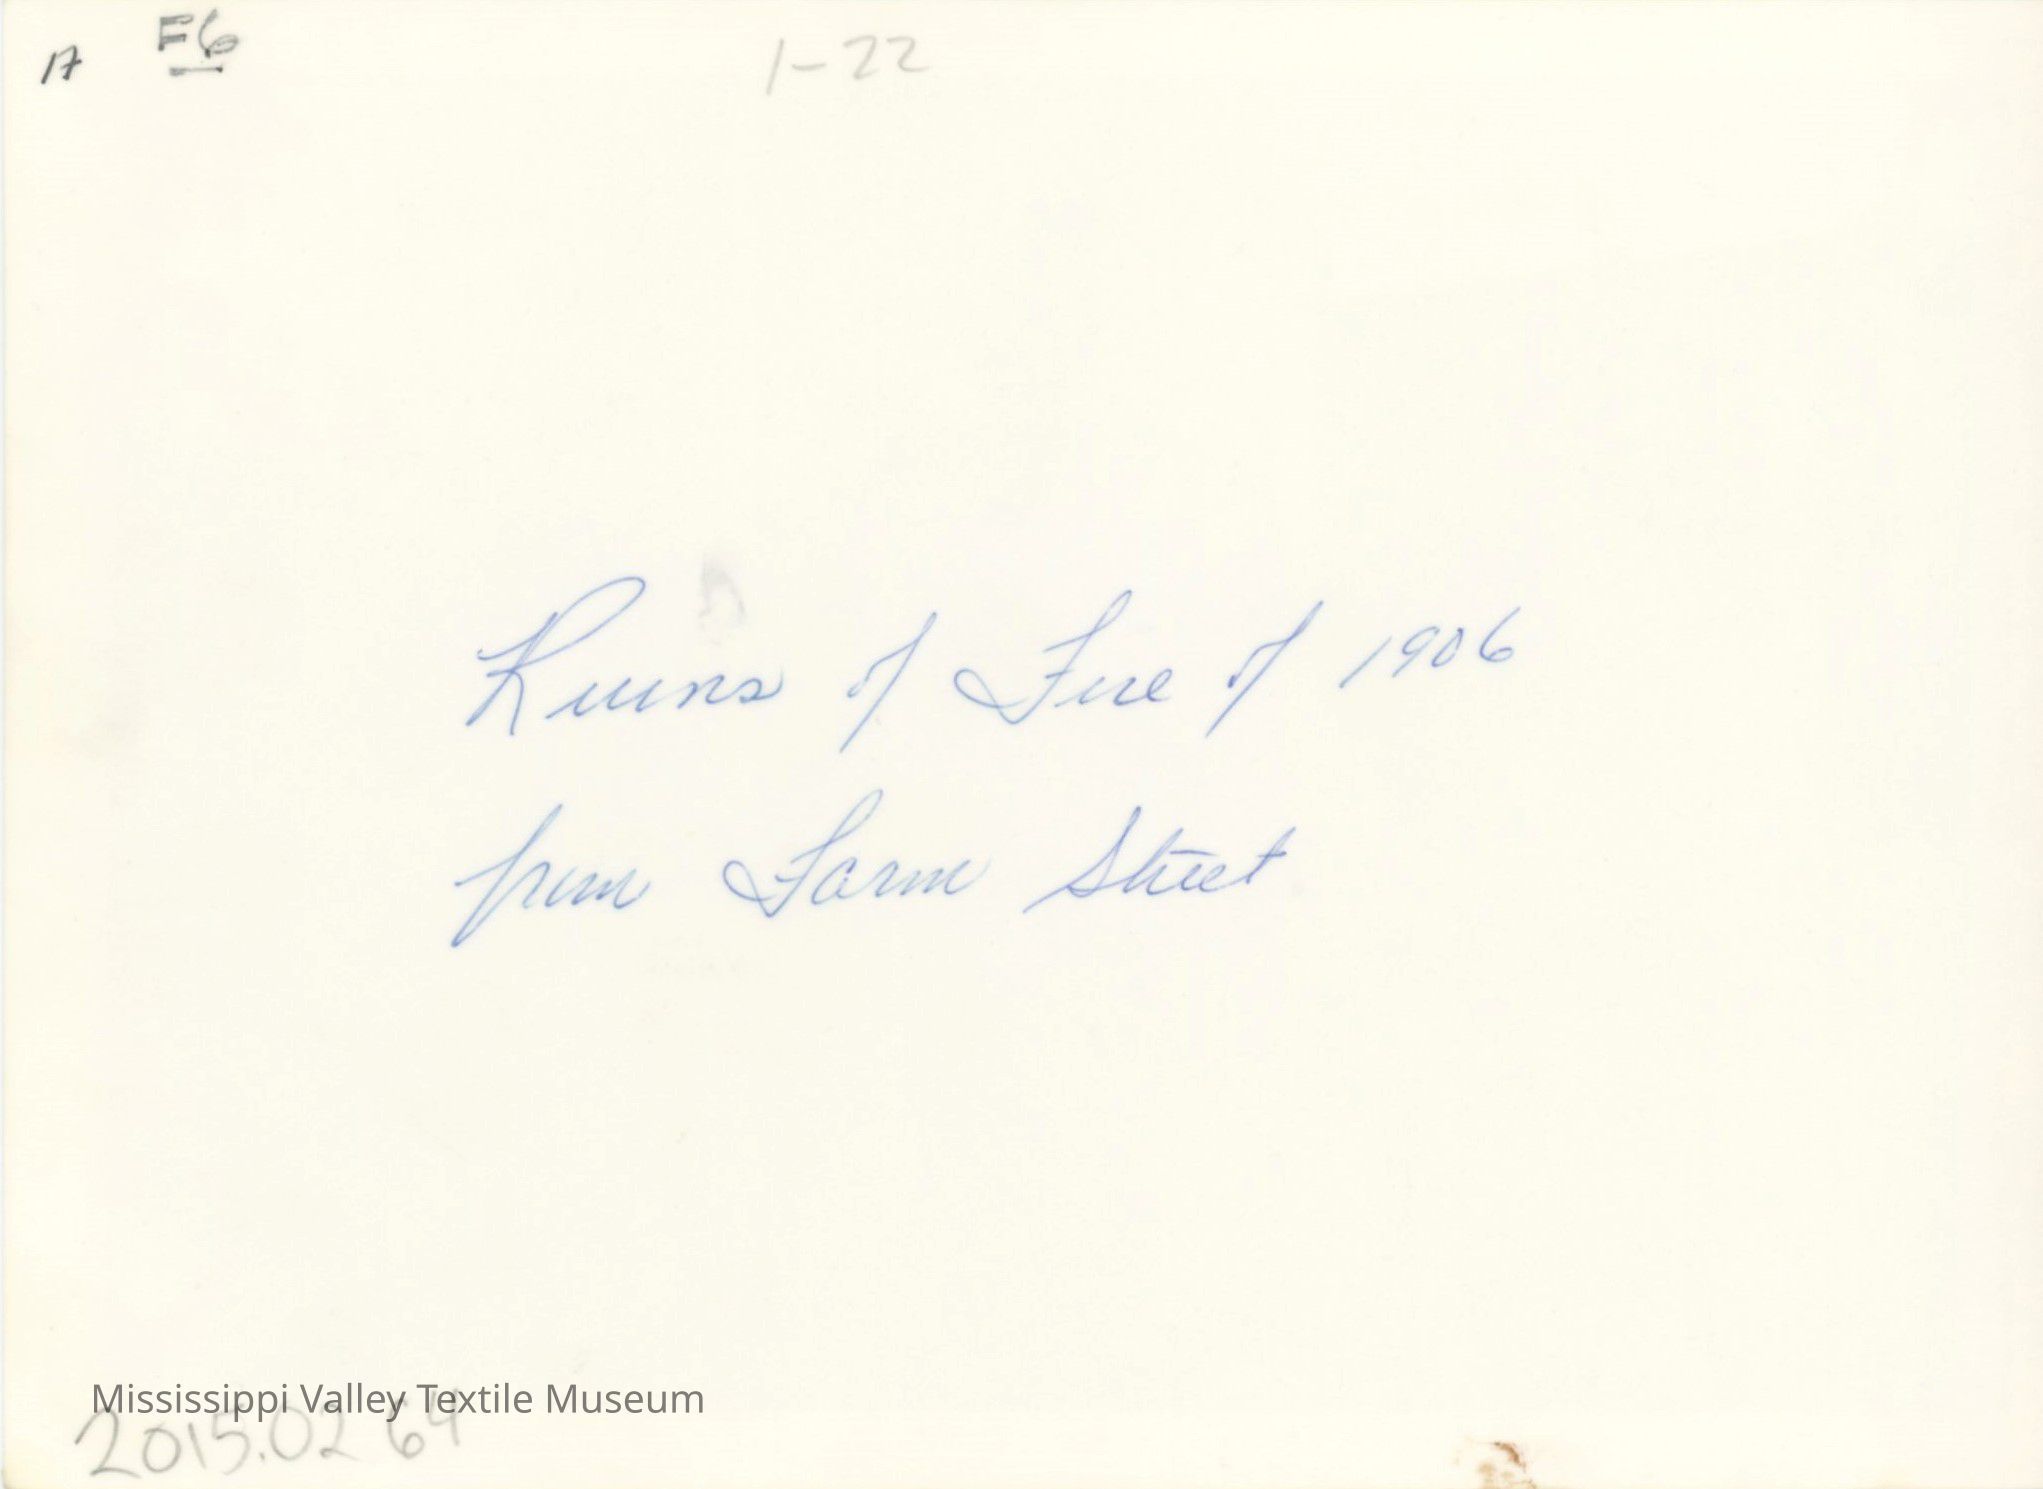 17 F6 1-22
Ruins of Fire of 1906
from Farm Street
Mississippi Valley Textile Museum
2015.02 64